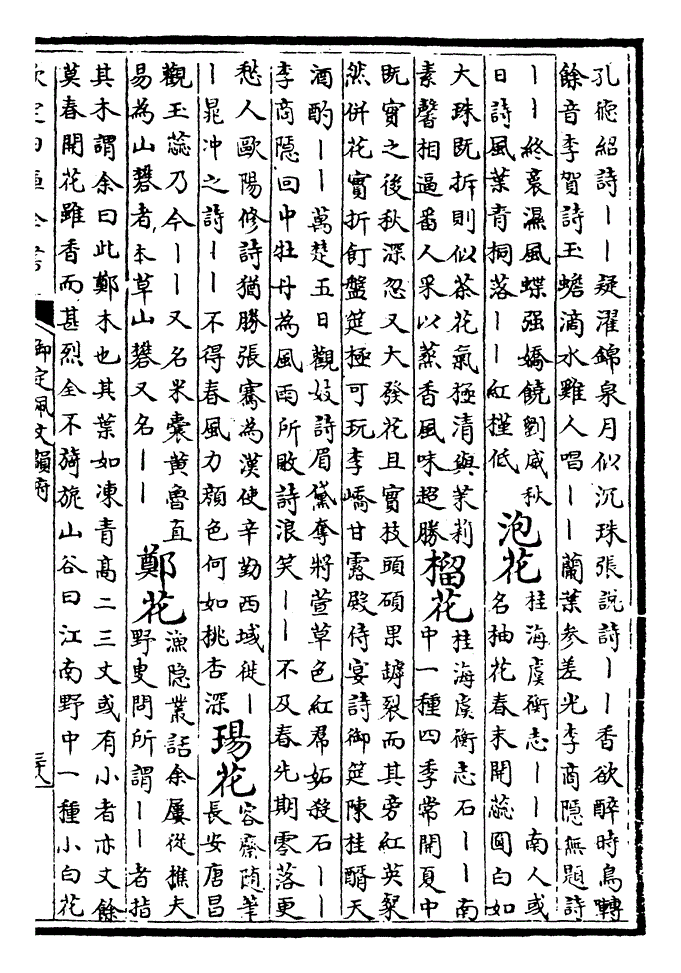 孔德紹詩丨丨疑濯錦泉月似沉珠張說詩丨丨香欲醉時鳥轉
餘音李賀詩玉蟾滴水雞人唱丨丨蘭葉參差光李商隱無題詩
丨丨終裛濕風蝶强嬌饒劉威秋
日詩風葉青桐落丨丨紅槿低
泡花
桂海虞衡志丨丨南人或
名柚花春末開蕊圓白如
大珠既拆則似茶花氣極清與茉莉
素馨相逼番人采以蒸香風味超勝
榴花
桂海虞衡志石丨丨南
中一種四季常開夏中
既實之後秋深忽又大發花且實枝頭碩果罅裂而其旁紅英粲
然併花實折飣盤筵極可玩李嶠甘露殿侍宴詩御筵陳桂醑天
酒酌丨丨萬楚五日觀妓詩眉黛奪將萱草色紅裙妬殺石丨丨
李商隱回中牡丹為風雨所敗詩浪笑丨丨不及春先期零落更
愁人歐陽修詩猶勝張騫為漢使辛勤西域徙丨
丨晁冲之詩丨丨不得春風力顔色何如桃杏深
瑒花
容齋随筆
長安唐昌
觀玉蕊乃今丨丨又名米囊黄魯直
易為山礬者本草山礬又名丨丨
鄭花
漁隱叢話余屢從樵夫
野叟問所謂丨丨者指
其木謂余曰此鄭木也其葉如凍青高二三丈或有小者亦丈餘
莫春開花雖香而甚烈全不旖旎山谷曰江南野中一種小白花
欽定四庫全書
御定佩文韻府